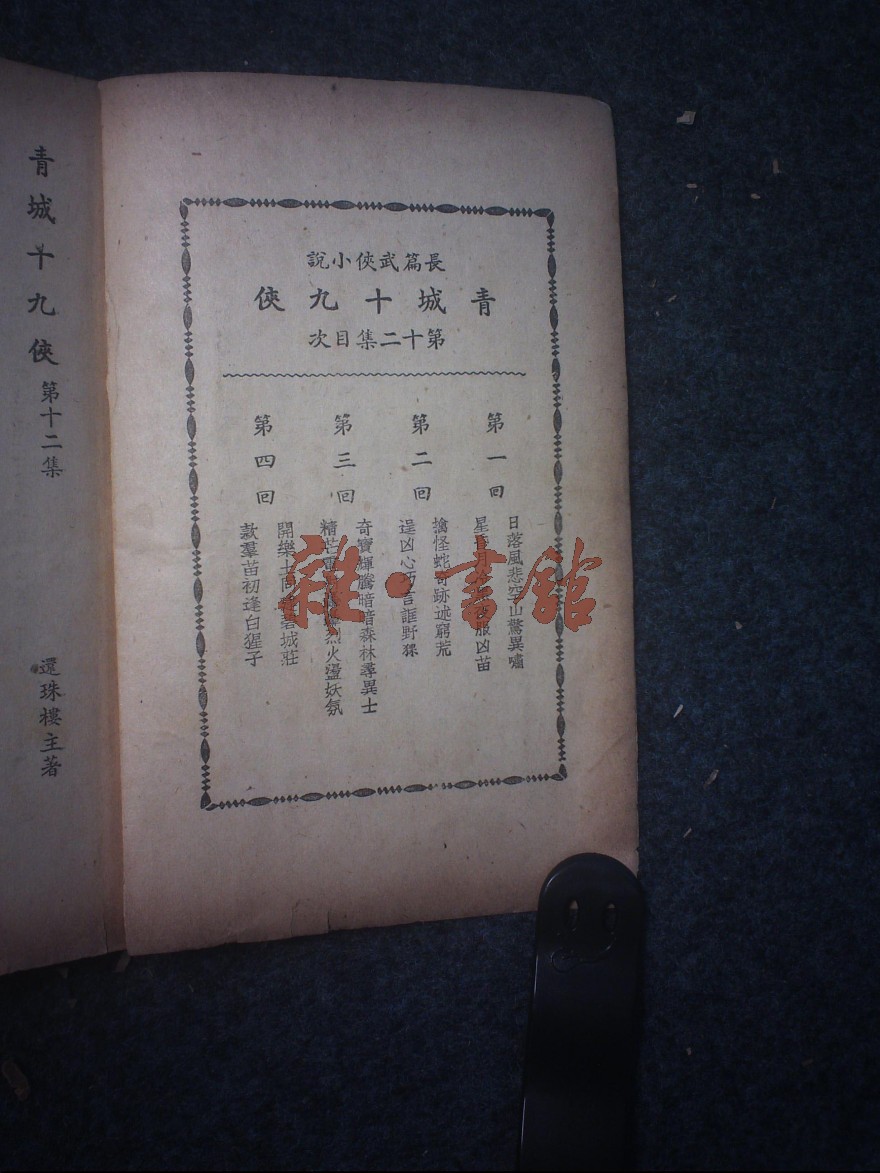 長篇武俠小說
青城十九俠
第十二集目次
第一回
日落風悲空山驚異嘯
星昏月 服凶苗
第二回
擒怪蛇奇跡述窮荒
逞凶心巧言誆野猓
第三回
奇寶輝騰暗暗森林尋異士
精芒 烈火盪妖氛
第四回
開樂土 碧城莊
款羣苗初逢白猩子
青城十九俠 第十二集 還珠樓主著
雜·書館